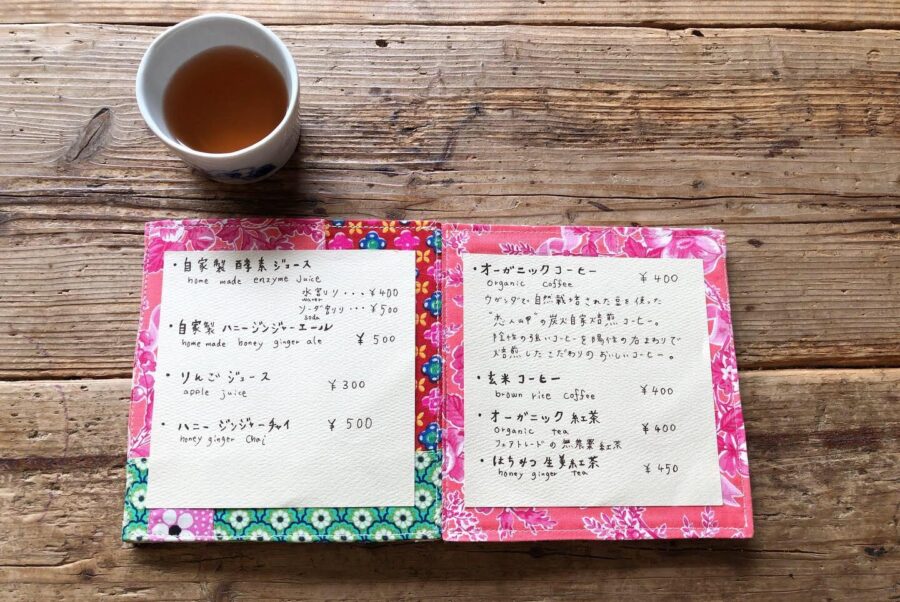 ・自家製 酵素ジュース
home made enzyme juice
水割り・・・¥400
water
ソーダ割り・・・¥500
soda
・自家製 ハニージンジャーエール
home made honey ginger ale ¥500
・りんごジュース
apple juice ¥300
・ハニージンジャーチャイ ¥500
honey ginger chai
・オーガニックコーヒー ¥400
Organic coffee
ウガンダで自然栽培された豆を使った
の炭火自家焙煎コーヒー。
陰性の強いコーヒーを陽性の石まわりで
焙煎したこだわりのおいしいコーヒー。
・玄米コーヒー
brown rice coffee ¥400
・オーガニック 紅茶
Organic tea ¥400
フェアトレードの無農薬紅茶
・はちみつ生姜紅茶
honey ginger tea ¥450